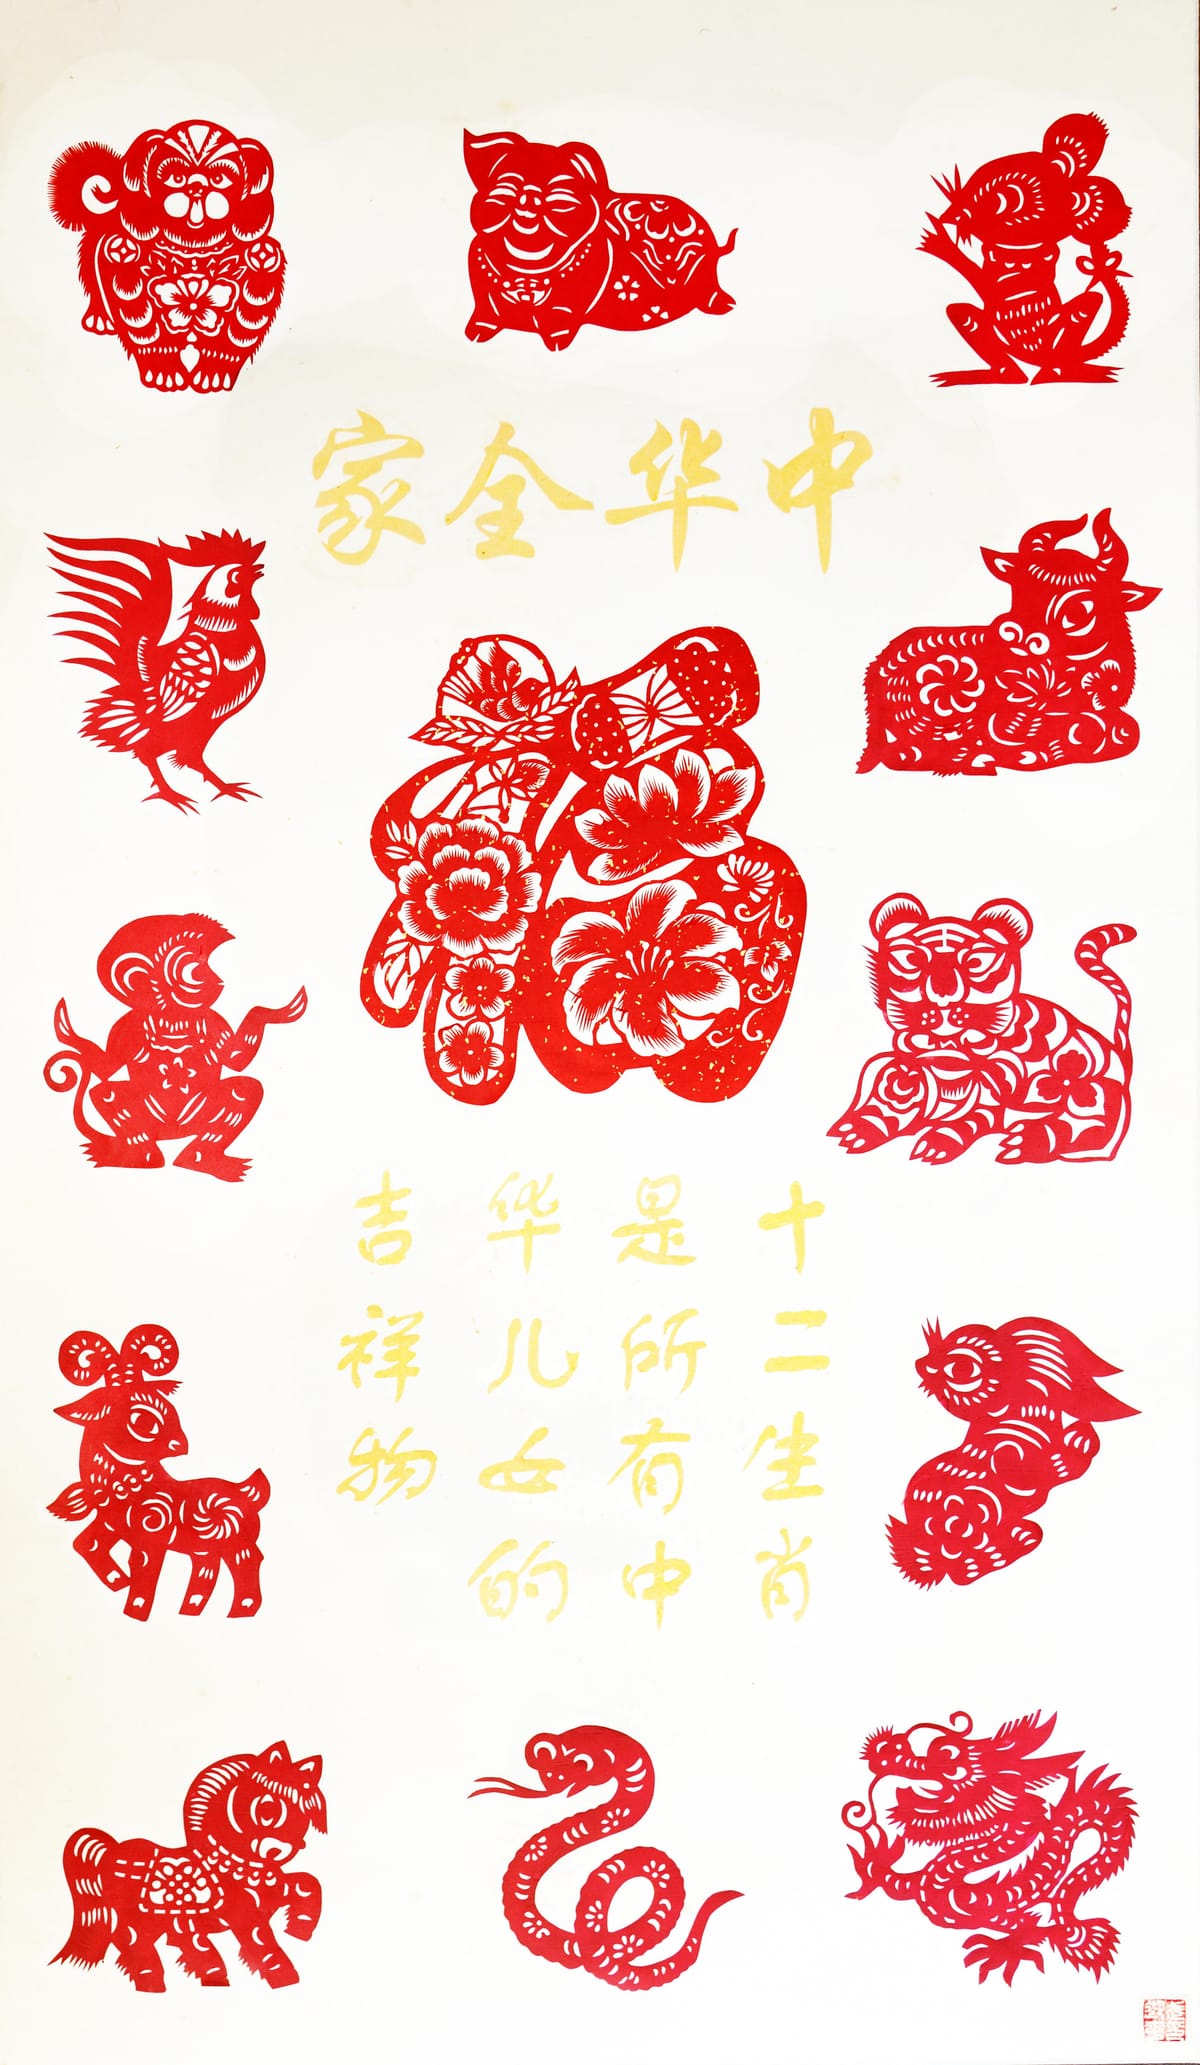 中华全家
福
十二生肖
是所有中
华儿女的
吉祥物